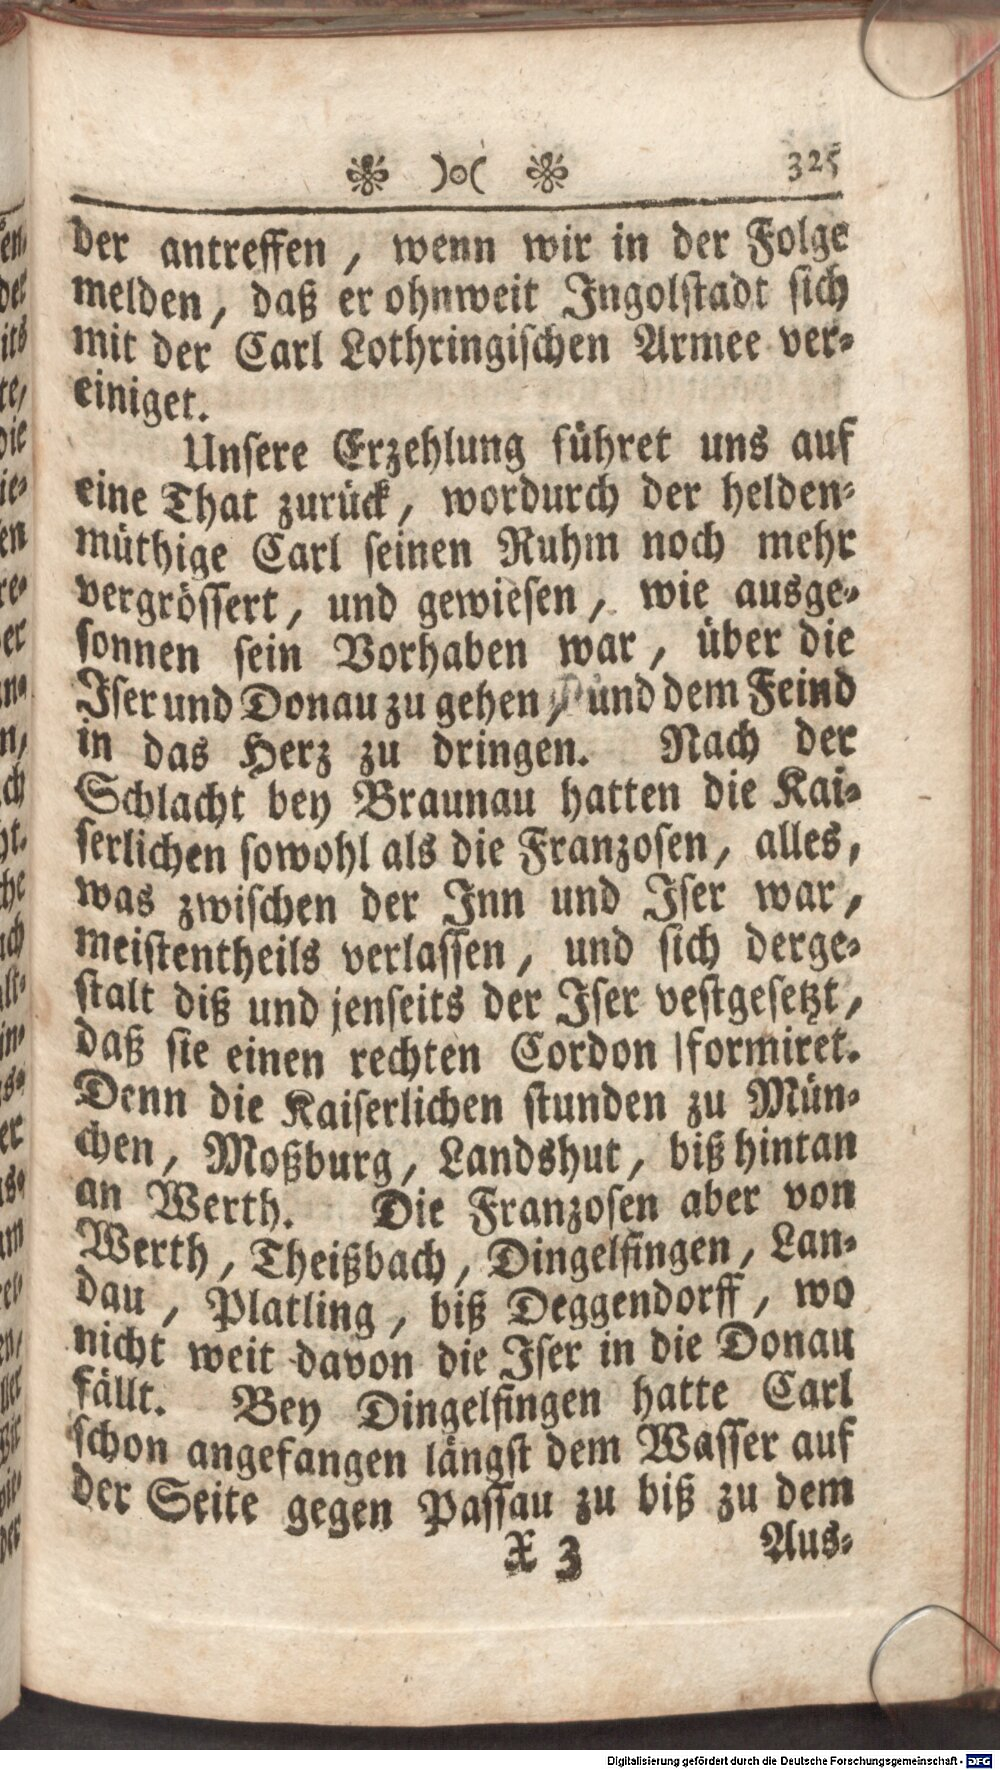 325
der antreffen, wenn wir in der Folge
melden, daß er ohnweit Ingolstadt sich
mit der Carl Lothringischen Armee ver-
einiget.
Unsere Erzehlung führet uns auf
eine That zurück, wordurch der helden-
müthige Carl seinen Ruhm noch mehr
vergrössert, und gewiesen, wie ausge-
sonnen sein Vorhaben war, über die
Iser und Donau zu gehen, und dem Feind
in das Herz zu dringen. Nach der
Schlacht bey Braunau hatten die Kai-
serlichen sowohl als die Franzosen, alles,
was zwischen der Inn und Iser war,
meistentheils verlassen, und sich derge-
stalt diß und jenseits der Iser vestgesetzt,
daß sie einen rechten Cordon formiret.
Denn die Kaiserlichen stunden zu Mün-
chen, Moßburg, Landshut, biß hintan
an Werth. Die Franzosen aber von
Werth, Theißbach, Dingelfingen, Lan-
dau, Platling, biß Deggendorff, wo
nicht weit davon die Iser in die Donau
fällt. Bey Dingelfingen hatte Carl
schon angefangen längst dem Wasser auf
der Seite gegen Passau zu biß zu dem
X 3 Aus-
Digitalisierung gefördert durch die Deutsche Forschungsgemeinschaft - DFG